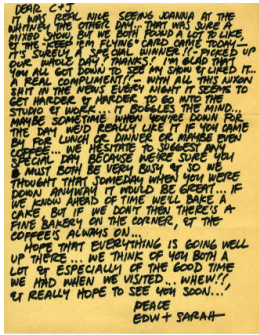 DEAR C+J
IT WAS REAL NICE SEEING JOANNA AT THE
WHITNEY THE OTHER DAY... THAT WAS SURE A
MIXED SHOW, BUT WE BOTH FOUND A LOT TO LIKE.
& THE "KEEP 'EM FLYING" CARD CAME TODAY..
IT'S SURELY A SPECIAL WINNER! (PICKED UP
OUR WHOLE DAY! THANKS! I'M GLAD THAT
YOU ALL GOT DOWN TO SEE MY SHOW & LIKED IT...
A REAL COMPLIMENT... WITH ALL THIS NIXON
SHIT IN THE NEWS EVERY NIGHT IT SEEMS TO
GET HARDER & HARDER TO GO INTO THE
STUDIO & WORK... IT BOGGLES THE MIND...
MAYBE SOMETIME WHEN YOU'RE DOWN FOR
THE DAY WE'D REALLY LIKE IT IF YOU CAME
BY FOR LUNCH OR DINNER OR MAYBE EVEN
COFFEE... WE HESITATE TO SUGGEST ANY
SPECIAL DAY BECAUSE WE'RE SURE YOU
MUST BOTH BE VERY BUSY & SO WE
THOUGHT THAT SOMEDAY WHEN YOU WERE
DOWN ANYWAY IT WOULD BE GREAT... IF
WE KNOW AHEAD OF TIME WE'LL BAKE A
CAKE, BUT IF WE DON'T THEN THERE'S A
FINE BAKERY ON THE CORNER, & THE
COFFEE'S ALWAYS ON...
HOPE THAT EVERYTHING IS GOING WELL
UP THERE... WE THINK OF YOU BOTH A
LOT & ESPECIALLY OF THE GOOD TIME
WE HAD WHEN WE VISITED.. WHEW!!,
& REALLY HOPE TO SEE YOU SOON...
PEACE
EDW + SARAH